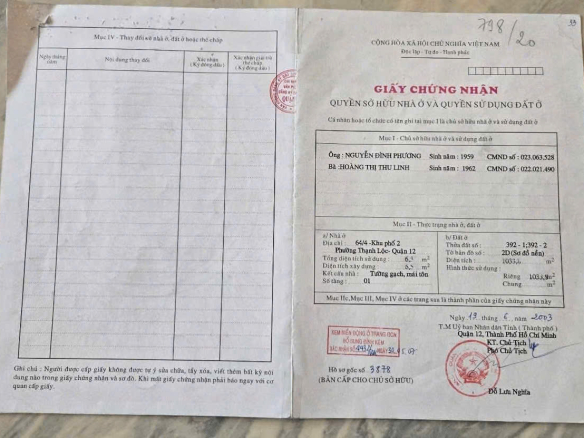 Mục IV - Thay đổi sở nhà ở, đất ở hoặc thế chấp
Ngày tháng năm
Nội dung thay đổi
Xác nhận (Ký đóng dấu)
Xác nhận giải trừ thế chấp (Ký đóng dấu)
Ghi chú : Người được cấp giấy không được tự ý sửa chữa, tẩy xóa, viết thêm bất kỳ nội dung nào trong giấy chứng nhận và sơ đồ. Khi mất giấy chứng nhận phải báo ngay với cơ quan cấp giấy.
798/20
CỘNG HÒA XÃ HỘI CHỦ NGHĨA VIỆT NAM
Độc lập - Tự do - Hạnh phúc
GIẤY CHỨNG NHẬN
QUYỀN SỞ HỮU NHÀ Ở VÀ QUYỀN SỬ DỤNG ĐẤT Ở
Cá nhân hoặc tổ chức có tên ghi tại mục I là chủ sở hữu nhà ở và sử dụng đất ở
Mục I - Chủ sở hữu nhà ở và sử dụng đất ở
Ông : NGUYỄN ĐÌNH PHƯƠNG Sinh năm : 1959 CMND số : 023.063.528
Bà : HOÀNG THỊ THU LINH Sinh năm : 1962 CMND số : 022.021.490
Mục II - Thực trạng nhà ở, đất ở
a/ Nhà ở
Địa chỉ : 64/4 -Khu phố 2
Phường Thạnh Lộc- Quận 12
Tổng diện tích sử dụng : m²
Diện tích xây dựng : m²
Kết cấu nhà : Tường gạch, mái tôn
Số tầng : 01
b/ Đất ở
Thửa đất số : 392 -1; 392 - 2
Tờ bản đồ số : 2D (Sơ đồ nền)
Diện tích : m²
Hình thức sử dụng :
Riêng m²
Chung m²
Mục IIc, Mục III, Mục IV ở các trang sau là thành phần của giấy chứng nhận này
Ngày 13 tháng 6 năm 2003
T.M Uỷ ban Nhân dân Tỉnh (Thành phố)
Quận 12, Thành Phố Hồ Chí Minh
KT. Chủ Tịch
Phó Chủ Tịch
Hồ sơ gốc số 3878
(BẢN CẤP CHO CHỦ SỞ HỮU)
Đỗ Lưu Nghĩa